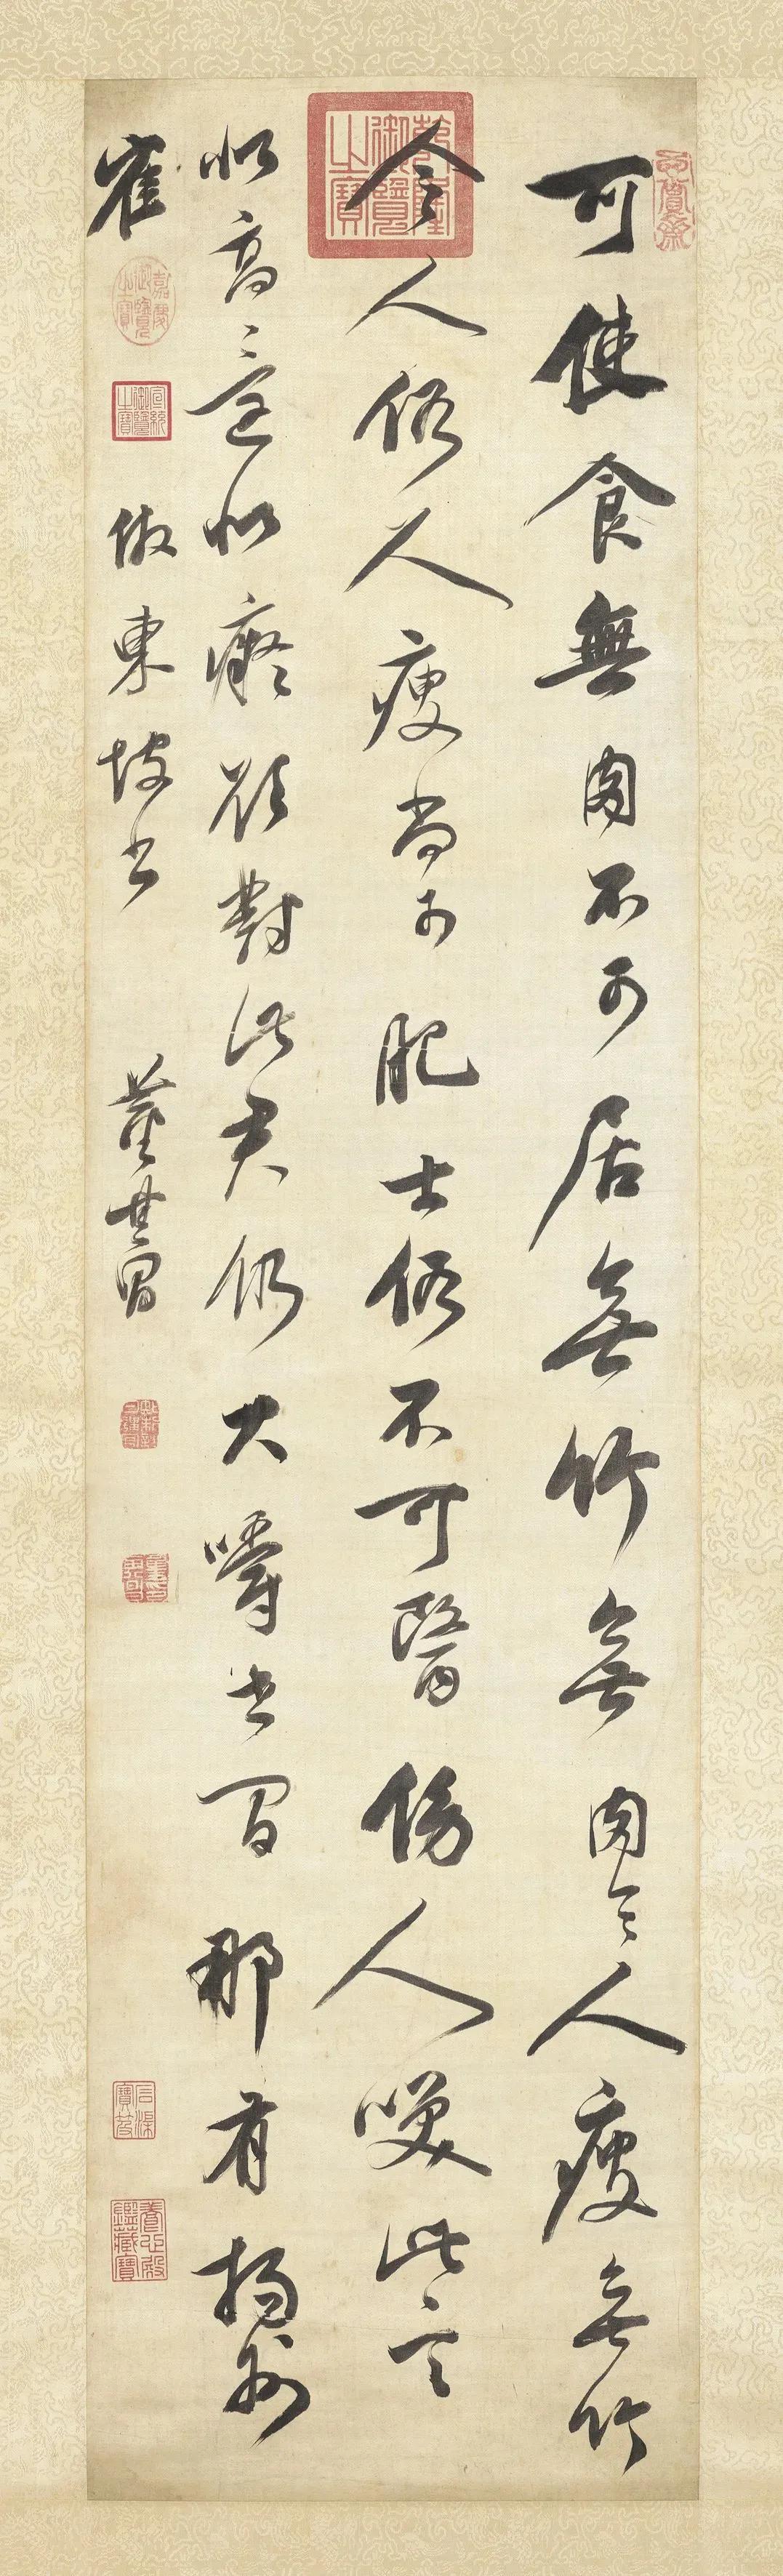 玄賞齋
可使食無肉不可居無竹無肉令人瘦無竹
乾隆御覽之寶
令人俗人瘦尚可肥士俗不可醫傍人咲此言
似高還似癡欲對此君仍大嚼世間那有揚州
隺
嘉慶御覽之寶
宣統御覽之寶
倣東坡書
董其昌
石渠寶笈
養心殿鑑藏寶